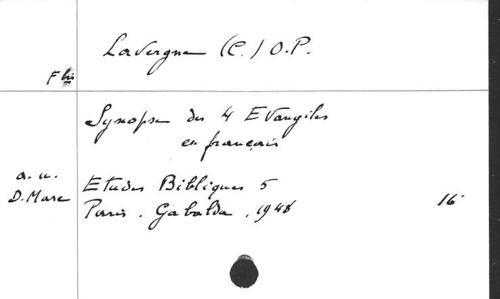 Lavergne (C.) O.P.
F bis
Synopse des 4 Evangiles
en français
a. u.
D. Marc
Etudes Bibliques 5
Paris. Gabalda, 1948
16°